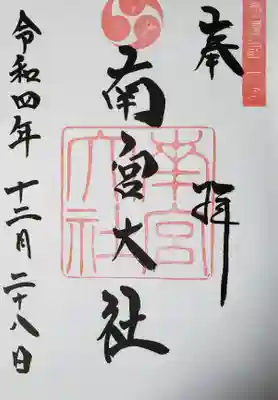 奉拝
南宮大社
南宮大社
令和四年 十二月 二十八日